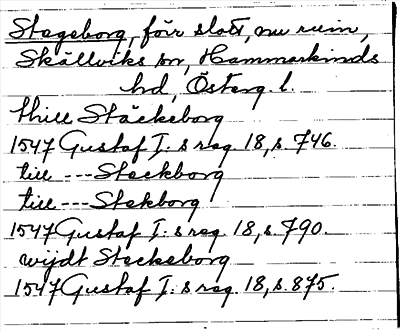 Stegeborg, förr slott, nu ruin,
Skällviks sn, Hammarkinds
hd, Österg. l.
thill Stäckeborg
1547 Gustaf I:s reg. 18, s. 746.
till --- Steckborg
till --- Stekborg
1547 Gustaf I:s reg. 18, s. 790.
wijdt Steckeborg
1547 Gustaf I:s reg. 18, s. 875.